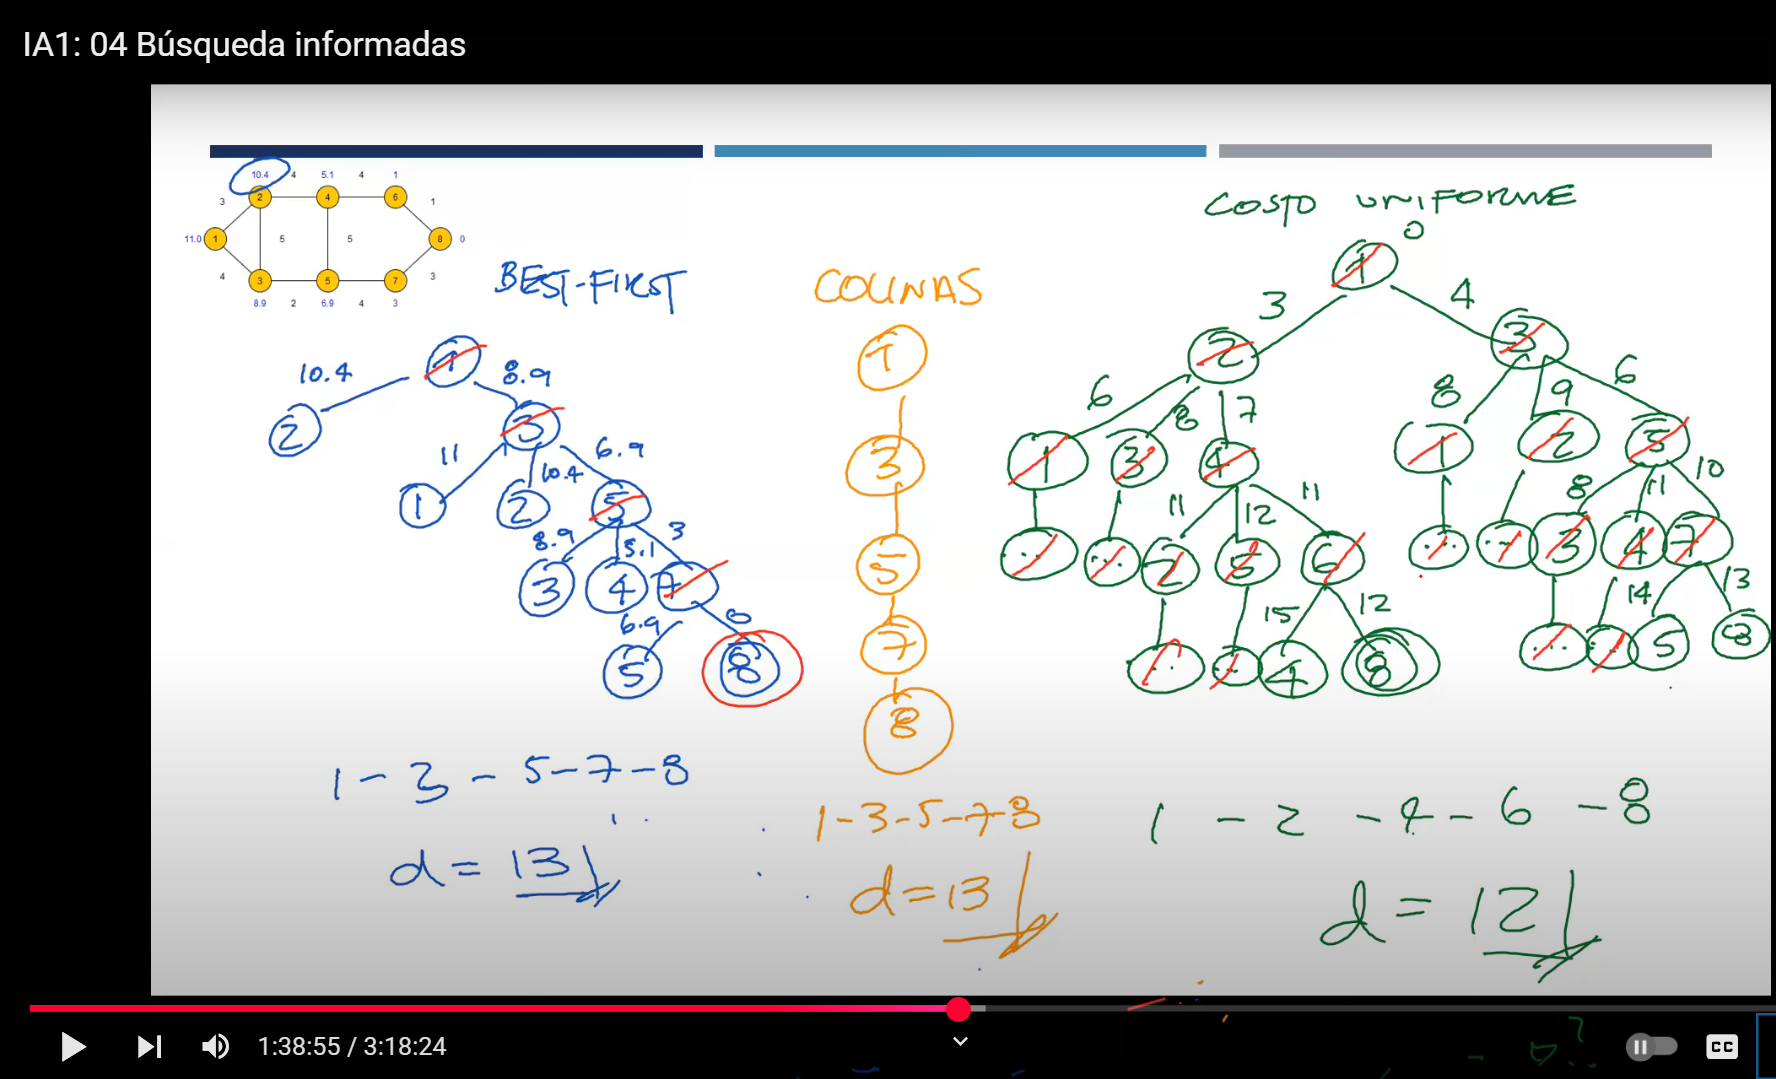 IA1: 04 Búsqueda informadas
10.4 4 5.1 4 1
2 4 6
3 1
11.0 1 5 5 8 0
4 3
3 5 7
8.9 2 6.9 4 3
BEST-FIRST
1
10.4 8.9
2 3
11 10.4 6.9
1 2 5
8.9 5.1 3
3 4 7
6.9 0
5 8
1 - 3 - 5 - 7 - 8
d = 13
COLINAS
1
3
5
7
8
1-3-5-7-8
d = 13
COSTO UNIFORME
0
1
3 4
2 3
6 8 7 8 9 6
1 3 4 1 2 5
11 12 11 8 11 10
... ... 2 5 6 ... ... 3 4 7
15 12 14 13
... ... 4 8 ... ... 5 8
1 - 2 - 4 - 6 - 8
d = 12
1:38:55 / 3:18:24
CC